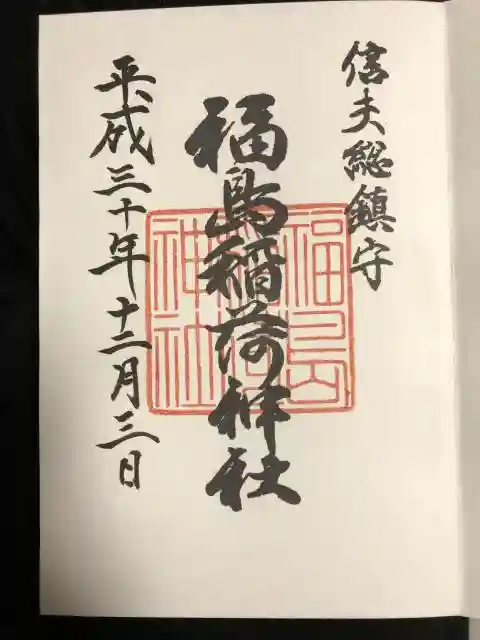 信夫総鎮守
福島稲荷神社
福島
稲荷
神社
平成三十年十二月三日